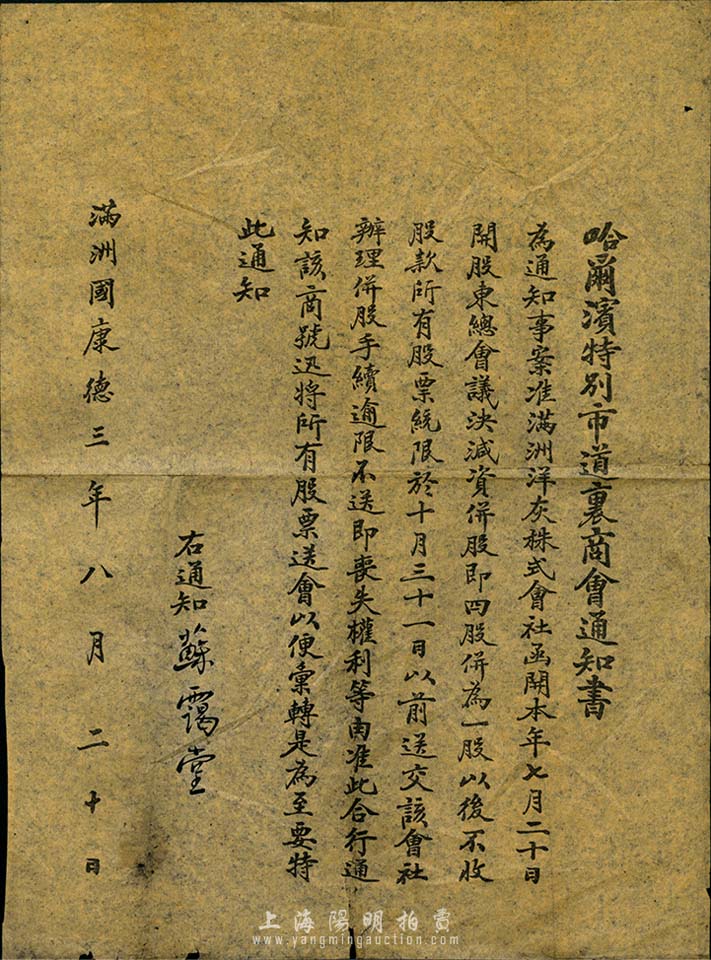 哈爾濱特別市道裏商會通知書
為通知事案准滿洲洋灰株式會社函開本年七月二十日
開股東總會議決減資併股即四股併為一股以後不收
股款所有股票統限於十月三十一日以前送交該會社
辦理併股手續逾限不送即喪失權利等由准此合行通
知該商號迅將所有股票送會以便彙轉是為至要特
此通知
右通知 蘇靄堂
滿洲國康德三年八月二十日
上海陽明拍賣
www.yangmingauction.com